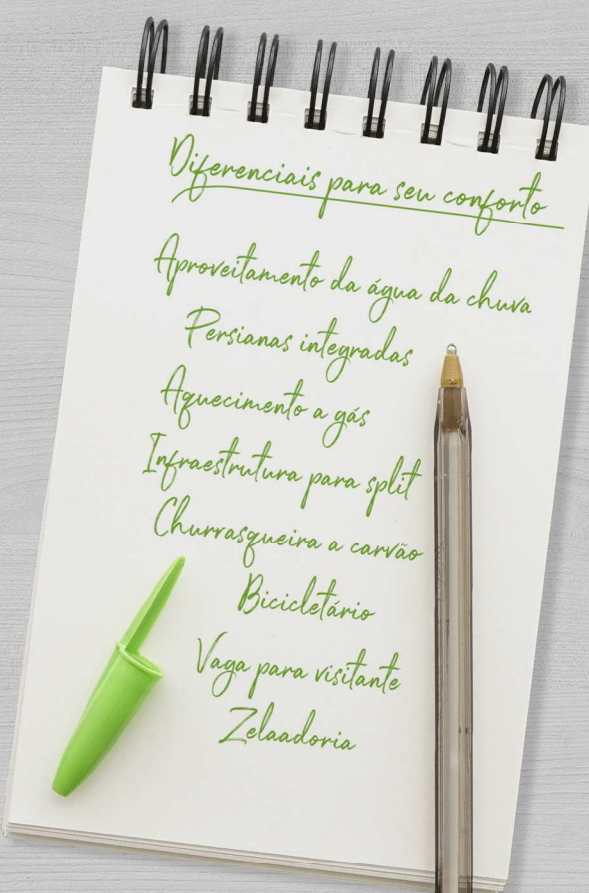 Diferenciais para seu conforto
Aproveitamento da água da chuva
Persianas integradas
Aquecimento a gás
Infraestrutura para split
Churrasqueira a carvão
Bicicletário
Vaga para visitante
Zelaadoria